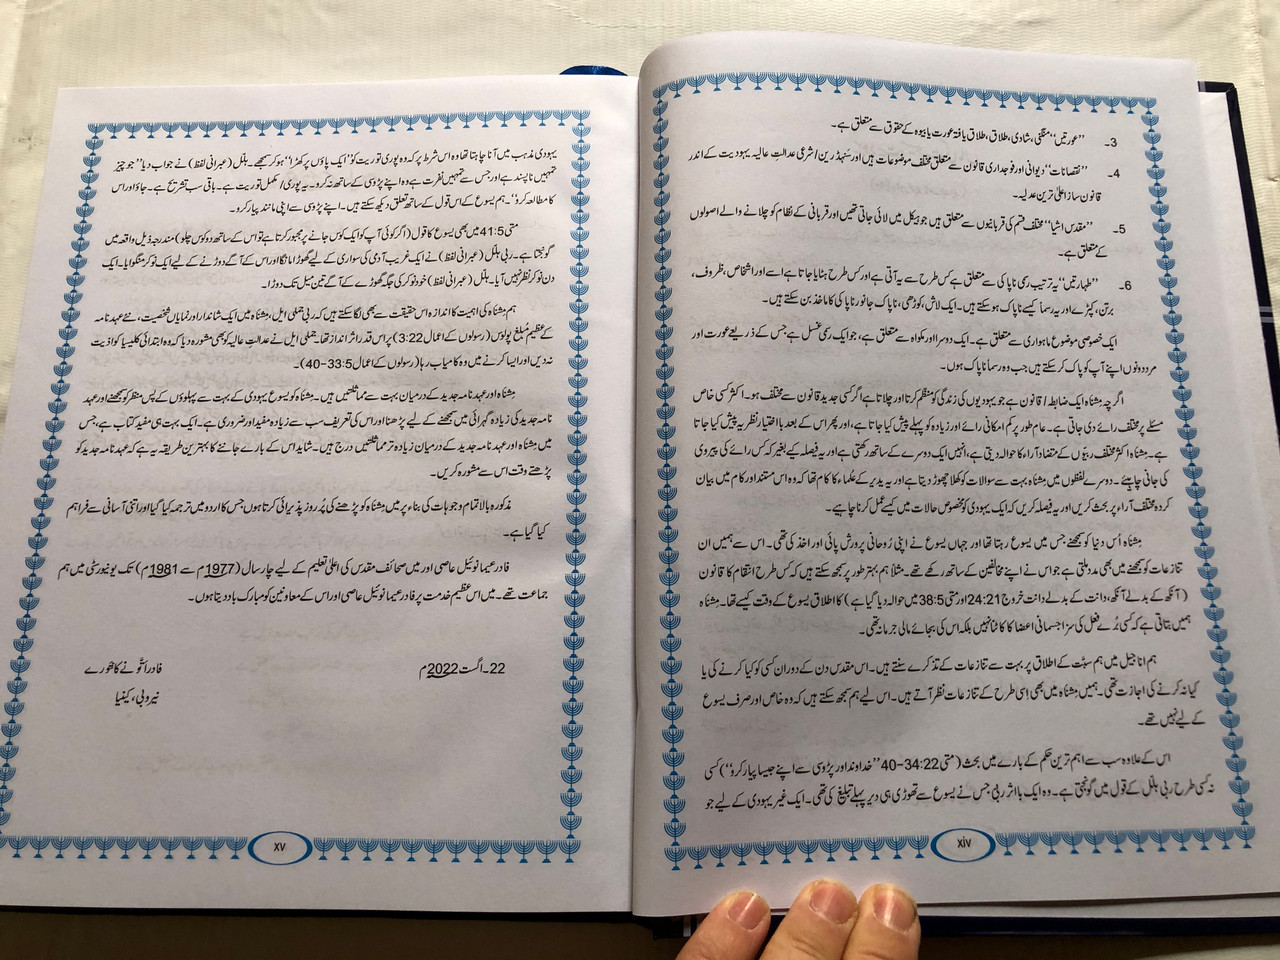 3- ”عورتیں“ منگنی، شادی، طلاق، طلاق یافتہ عورت یا بیوہ کے حقوق سے متعلق ہے۔
4- ”نقصانات“ دیوانی اور فوجداری قانون سے متعلق مختلف موضوعات ہیں اور سنہڈرین/شرعی عدالتِ عالیہ یہودیت کے اندر
قانون ساز اعلیٰ ترین عدلیہ۔
5- ”مقدس اشیا“ مختلف قسم کی قربانیوں سے متعلق ہیں جو ہیکل میں لائی جاتی تھیں اور قربانی کے نظام کو چلانے والے اصولوں
کے متعلق ہے۔
6- ”طہارتیں“ یہ ترتیب رسمی ناپاکی سے متعلق ہے کس طرح سے یہ آتی ہے اور کس طرح ہٹایا جاتا ہے اسے اور اشخاص، ظروف،
برتن، کپڑے اور یہ رسماً کیسے ناپاک ہو سکتے ہیں۔ ایک لاش، کوڑھی، ناپاک جانور ناپاکی کا ماخذ بن سکتے ہیں۔
ایک خصوصی موضوع ماہواری سے متعلق ہے۔ ایک دوسرا اور مکواہ سے متعلق ہے، جو ایک رسمی غسل ہے جس کے ذریعے عورت اور
مرد دونوں اپنے آپ کو پاک کر سکتے ہیں جب وہ رسماً ناپاک ہوں۔
اگرچہ مِشناہ ایک ضابطہ/قانون ہے جو یہودیوں کی زندگی کو منظم کرتا اور چلاتا ہے اگر کسی جدید قانون سے مختلف ہو۔ اکثر کسی خاص
مسئلے پر مختلف رائے دی جاتی ہے۔ عام طور پر کم امکانی رائے اور زیادہ کو پہلے پیش کیا جاتا ہے، اور پھر اس کے بعد با اختیار نظریہ پیش کیا جاتا
ہے۔ مِشناہ اکثر مختلف ربیّوں کے متضاد آراء کا حوالہ دیتی ہے، انہیں ایک دوسرے کے ساتھ رکھتی ہے اور یہ فیصلہ کیے بغیر کہ کس رائے کی پیروی
کی جانی چاہیئے۔ دوسرے لفظوں میں مِشناہ بہت سے سوالات کو کھلا چھوڑ دیتا ہے اور یہ بعد یر کے علماء کا کام تھا کہ وہ اس مستند اور کام میں بیان
کردہ مختلف آراء پر بحث کریں اور یہ فیصلہ کریں کہ ایک یہودی کو مخصوص حالات میں کیسے عمل کرنا چاہے۔
مِشناہ اُس دنیا کو سمجھنے جس میں یسوع رہتا تھا اور جہاں یسوع نے اپنی رُوحانی پرورش پائی اور اخذ کی تھی۔ اس سے ہمیں ان
تنازعات کو سمجھنے میں بھی مدد ملتی ہے جو اس نے اپنے مخالفین کے ساتھ رکھے تھے۔ مثلاً ہم بہتر طور پر سمجھ سکتے ہیں کہ کس طرح انتقام کا قانون
(آنکھ کے بدلے آنکھ، دانت کے بدلے دانت خروج 24:21 اور متی 38:5 میں حوالہ دیا گیا ہے) کا اطلاق یسوع کے وقت کیسے تھا۔ مِشناہ
ہمیں بتاتی ہے کہ کسی بُرے فعل کی سزا جسمانی اعضا کا کاٹنا نہیں بلکہ اس کی بجائے مالی جرمانہ تھی۔
ہم اناجیل میں ہم سبت کے اطلاق پر بہت سے تنازعات کے تذکرے سنتے ہیں۔ اس مقدس دن کے دوران کسی کو کیا کرنے کی یا
کیا نہ کرنے کی اجازت تھی۔ ہمیں مِشناہ میں بھی اِسی طرح کے تنازعات نظر آتے ہیں۔ اس لیے ہم سمجھ سکتے ہیں کہ وہ خاص اور صرف یسوع
کے لیے نہیں تھے۔
اس کے علاوہ سب سے اہم ترین حکم کے بارے میں بحث (متی 34:22-40 ”خداوند اور پڑوسی سے اپنے جیسا پیار کرو“) کسی
نہ کسی طرح ربی ہلل کے قول میں گونجتی ہے۔ وہ ایک با اثر ربی جس نے یسوع سے تھوڑی ہی دیر پہلے تبلیغ کی تھی۔ ایک غیر یہودی کے لیے جو
xiv
یہودی مذہب میں آنا چاہتا تھا وہ اس شرط پر کہ وہ پوری توریت کو ”ایک پاؤں پر کھڑا“ ہو کر سمجھے۔ ہلل (عبرانی لفظ) نے جواب دیا ”جو چیز
تمہیں ناپسند ہے اور جس سے تمہیں نفرت ہے وہ اپنے پڑوسی کے ساتھ نہ کرو۔ یہ پوری/مکمل توریت ہے۔ باقی سب تشریح ہے۔ جاؤ اور اس
کا مطالعہ کرو“۔ ہم یسوع کے اس قول کے ساتھ تعلق دیکھ سکتے ہیں۔ اپنے پڑوسی سے اپنی مانند پیار کرو۔
متی 41:5 میں بھی یسوع کا قول (اگر کوئی آپ کو ایک کوس جانے پر مجبور کرتا ہے تو اس کے ساتھ دو کوس چلو) مندرجہ ذیل واقعہ میں
گونجتا ہے۔ ربی ہلل (عبرانی لفظ) نے ایک غریب آدمی کی سواری کے لیے گھوڑا مانگا اور اس کے آگے دوڑنے کے لیے ایک نوکر منگوایا۔ ایک
دن نوکر نظر نہیں آیا۔ ہلل (عبرانی لفظ) خود نوکر کی جگہ گھوڑے کے آگے تین میل تک دوڑا۔
ہم مِشناہ کی اہمیت کا اندازہ اس حقیقت سے بھی لگا سکتے ہیں کہ ربی جملی ایل، مِشناہ میں ایک شاندار اور نمایاں شخصیت، نئے عہد نامہ
کے عظیم مُبلغ پولوس (رسولوں کے اعمال 3:22) پر اس قدر اثر انداز تھا۔ جملی ایل نے عدالتِ عالیہ کو بھی مشورہ دیا کہ وہ ابتدائی کلیسیا کو اذیت
نہ دیں اور ایسا کرنے میں وہ کامیاب رہا (رسولوں کے اعمال 33:5-40)۔
مِشناہ اور عہد نامہ جدید کے درمیان بہت سے مماثلتیں ہیں۔ مِشناہ کو یسوع یہودی کے بہت سے پہلوؤں کے پس منظر کو سمجھنے اور عہد
نامہ جدید کی زیادہ گہرائی میں سمجھنے کے لیے پڑھنا اور اس کی تعریف سب سے زیادہ مفید اور ضروری ہے۔ ایک بہت ہی مفید کتاب ہے، جس
میں مِشناہ اور عہد نامہ جدید کے درمیان زیادہ تر مماثلتیں درج ہیں۔ شاید اس کے بارے جاننے کا بہترین طریقہ یہ ہے کہ عہد نامہ جدید کو
پڑھتے وقت اس سے مشورہ کریں۔
مذکورہ بالا تمام وجوہات کی بناء پر میں مِشناہ کو پڑھنے کی پُر روز پذیرائی کرتا ہوں جس کا اردو میں ترجمہ کیا گیا اور اتنی آسانی سے فراہم
کیا گیا ہے۔
فادر عیمانوئیل عاصی اور میں صحائف مقدس کی اعلیٰ تعلیم کے لیے چار سال (1977م سے 1981م) تک یونیورسٹی میں ہم
جماعت تھے۔ میں اس عظیم خدمت پر فادر عیمانوئیل عاصی اور اس کے معاونین کو مبارک باد دیتا ہوں۔
22۔اگست 2022م
فادر انٹونے کاتھورے
نیروبی، کینیا
xv